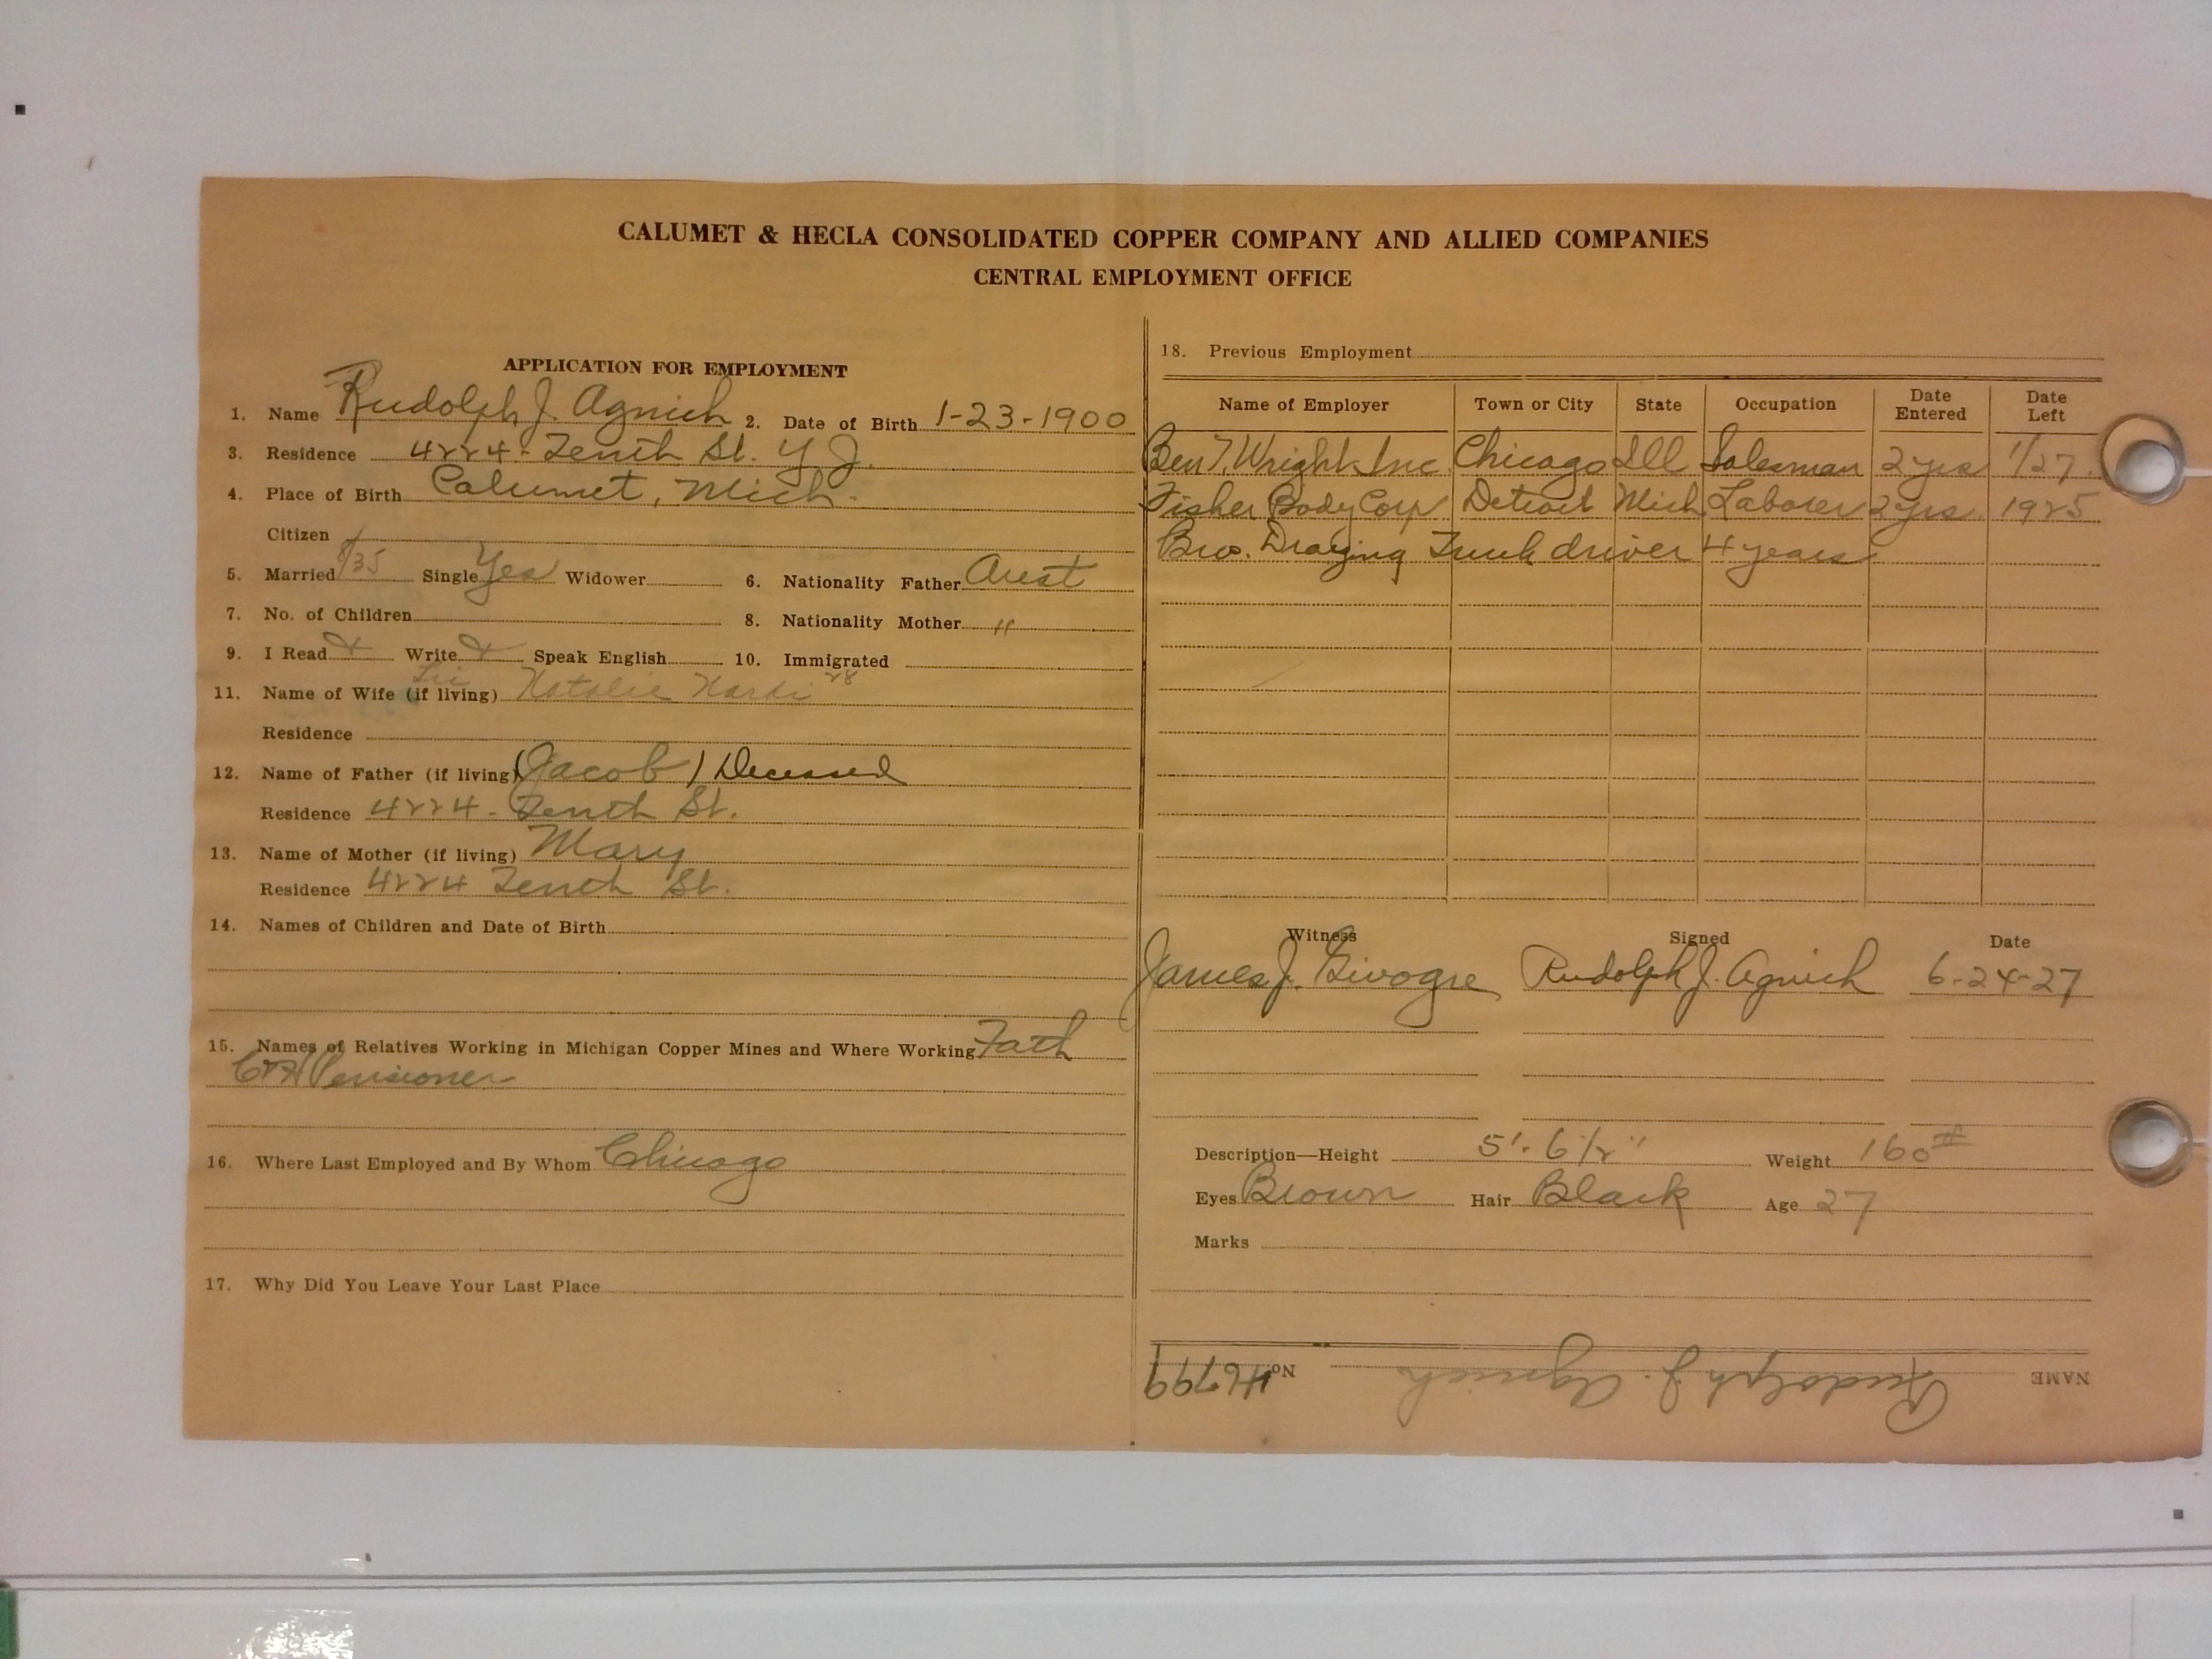 CALUMET & HECLA CONSOLIDATED COPPER COMPANY AND ALLIED COMPANIES
CENTRAL EMPLOYMENT OFFICE
APPLICATION FOR EMPLOYMENT
1. Name Rudolph J. Agnich 2. Date of Birth 1-23-1900
3. Residence 4224- Tenth St. Y J.
4. Place of Birth Calumet, Mich.
Citizen
5. Married /35 Single Yes Widower 6. Nationality Father Aust
7. No. of Children 8. Nationality Mother "
9. I Read Write Speak English 10. Immigrated
11. Name of Wife (if living) Natalie Nardi 28
Residence
12. Name of Father (if living) (Jacob) Deceased
Residence 4224- Tenth St.
13. Name of Mother (if living) Mary
Residence 4224 Tenth St.
14. Names of Children and Date of Birth
15. Names of Relatives Working in Michigan Copper Mines and Where Working Fath
C&H Pensioner
16. Where Last Employed and By Whom Chicago
17. Why Did You Leave Your Last Place
18. Previous Employment
Name of Employer Town or City State Occupation Date Entered Date Left
Ben T. Wright Inc Chicago Ill Salesman 2 yrs 1/27.
Fisher Body Corp Detroit Mich Laborer 2 yrs. 1925
Bros. Draying Truck driver 4 years
Witness Signed Date
James J. Rudolph J. Agnich 6-24-27
Description—Height 5'-6 1/2" Weight 160#
Eyes Brown Hair Black Age 27
Marks
NAME Rudolph J. Agnich No. 46799